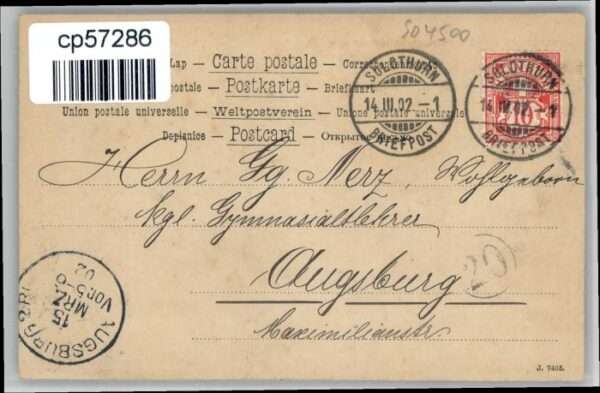 cp57286
SO4500
Lap — Carte postale — Correspon
postale — Postkarte — Briefkaart
Union postale universelle — Weltpostverein — Unione postale universale
Dopisnice — Postcard — Открытое
SOLOTHURN
14.III.02.-1
BRIEFPOST
SOLOTHURN
14.III.02.-1
BRIEFPOST
10
Herrn Gg. Merz, Wohlgeborn
kgl. Gymnasiallehrer
Augsburg
Maximilianstr.
AUGSBURG 2.
15
MRZ
Vor. 5-6
02
J. 7405.